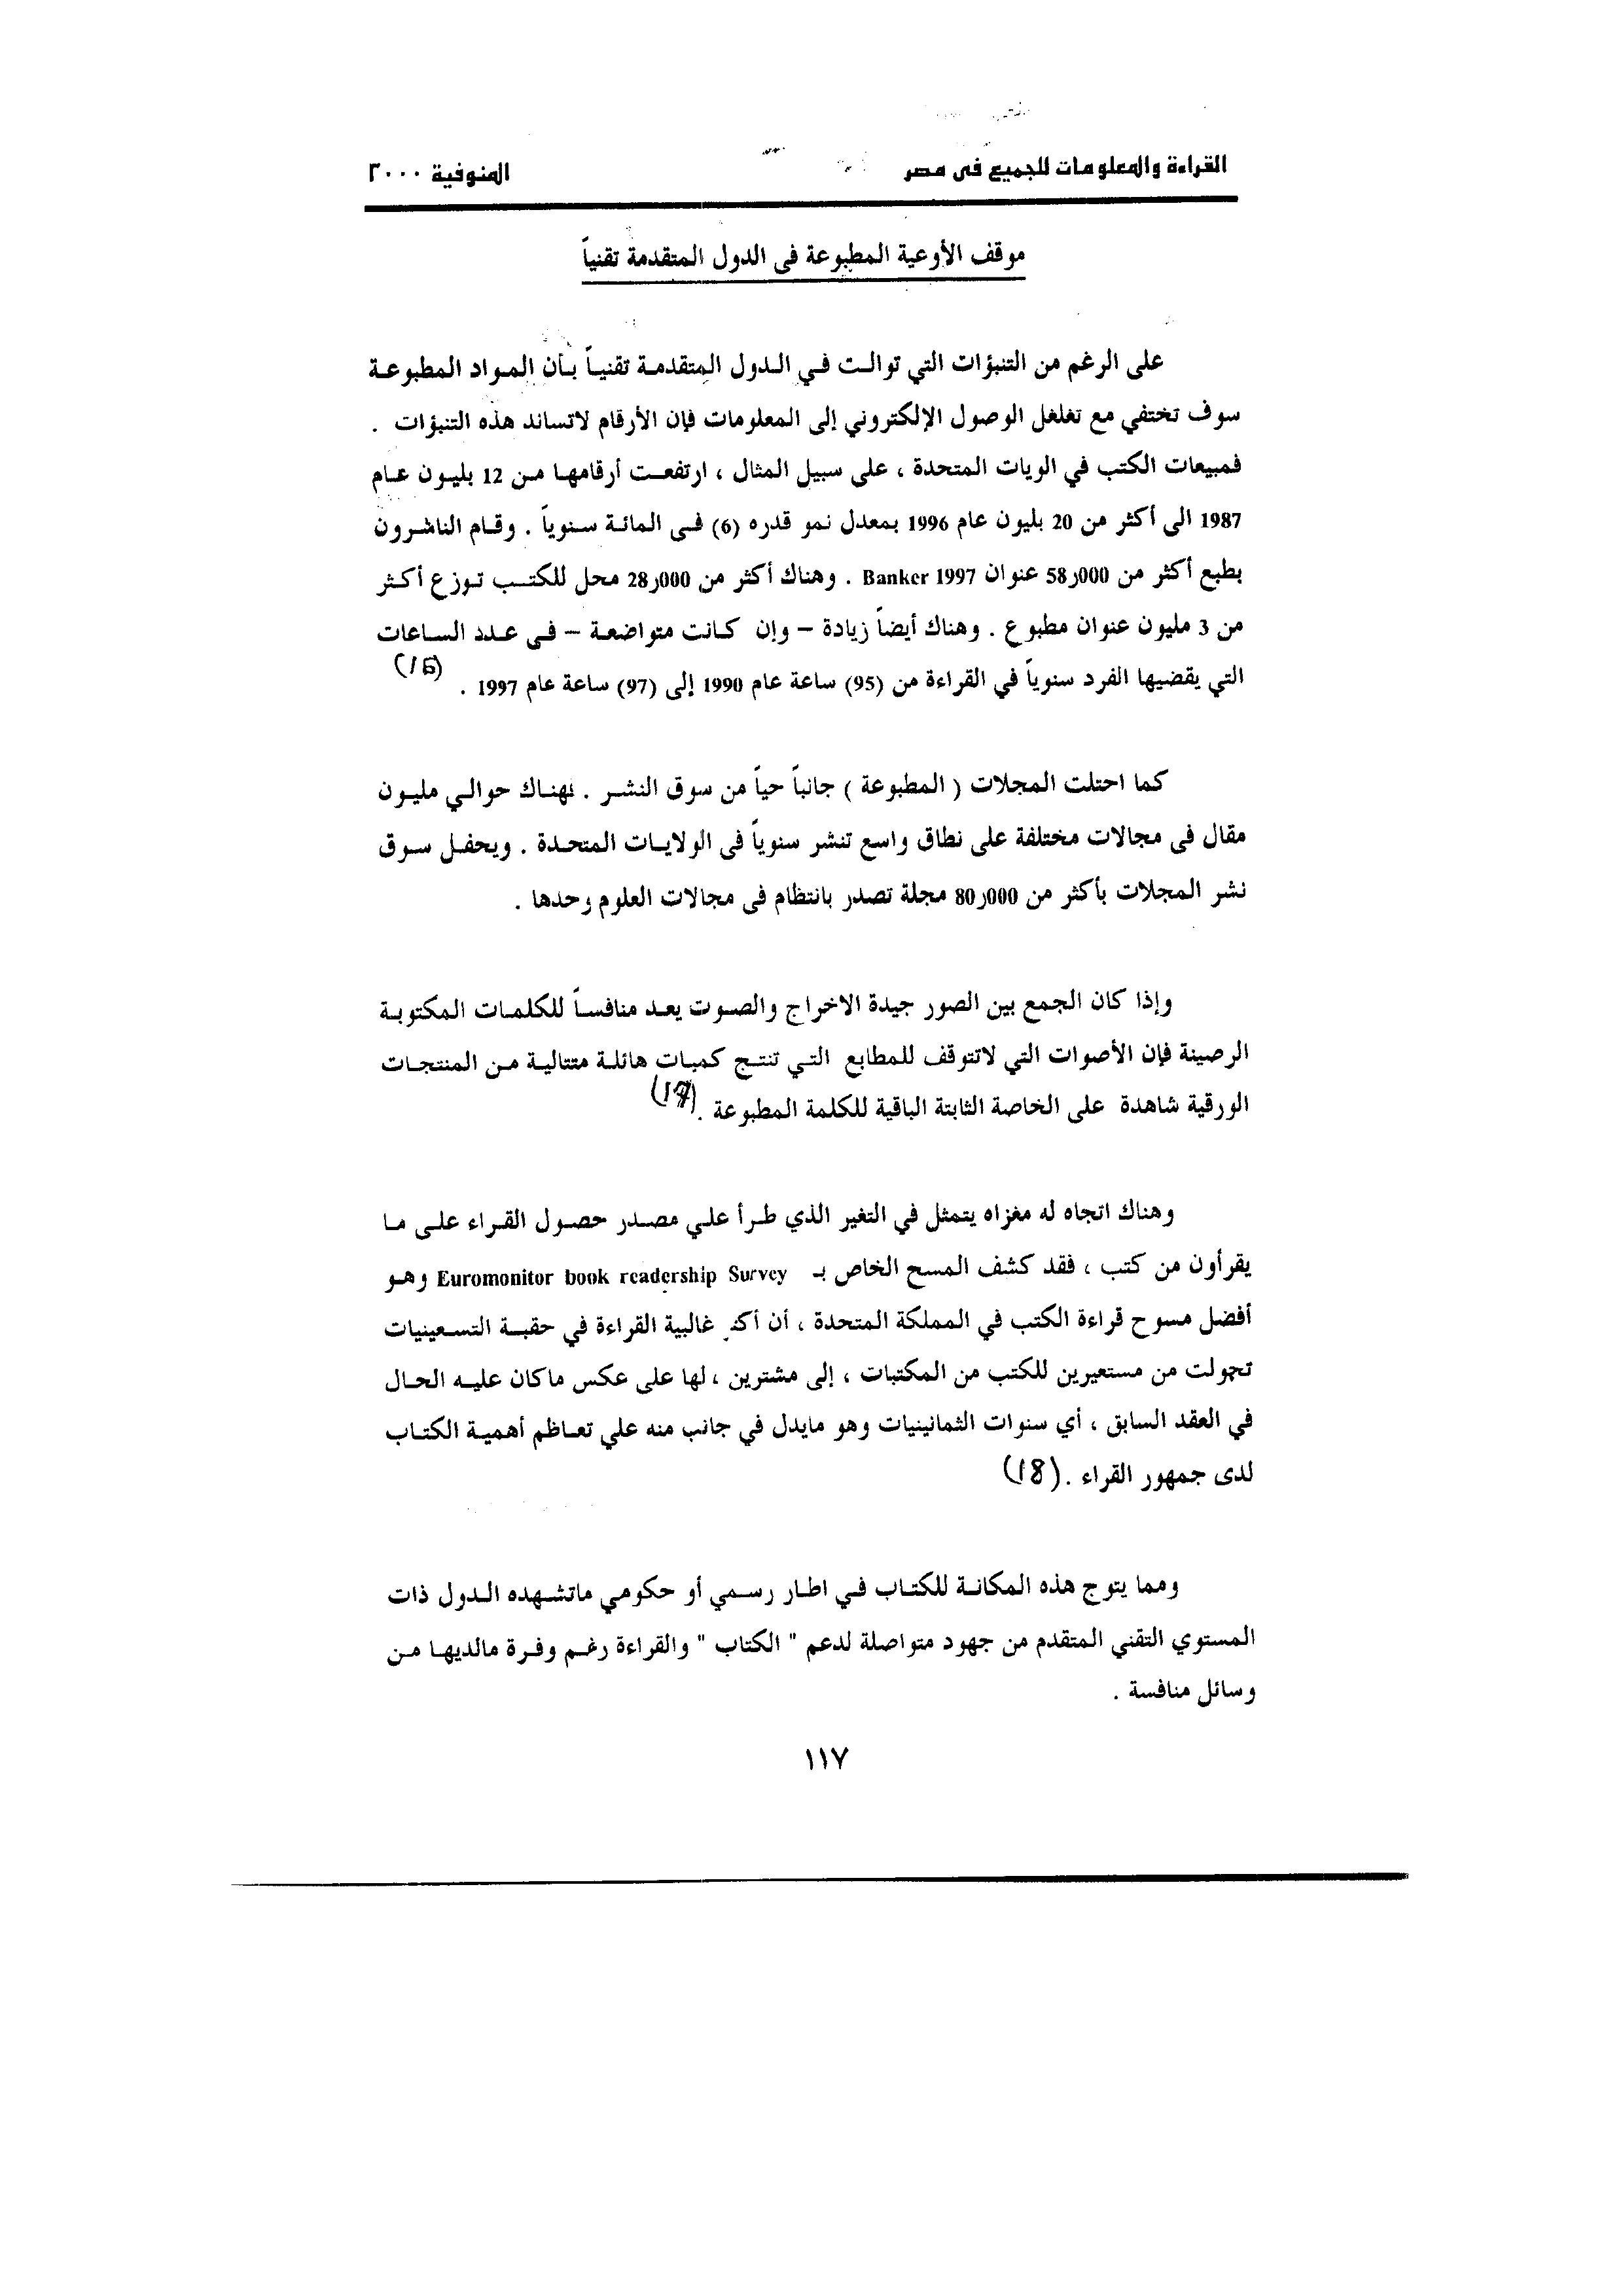 القراءة والمعلومات للجميع فى مصر المنوفية ٢٠٠٠
موقف الأوعية المطبوعة فى الدول المتقدمة تقنياً
على الرغم من التنبؤات التي توالت في الدول المتقدمة تقنياً بأن المواد المطبوعة
سوف تختفي مع تغلغل الوصول الإلكتروني إلى المعلومات فإن الأرقام لاتساند هذه التنبؤات .
فمبيعات الكتب في الويات المتحدة ، على سبيل المثال ، ارتفعت أرقامها من 12 بليون عام
1987 الى أكثر من 20 بليون عام 1996 بمعدل نمو قدره (6) فى المائة سنوياً . وقام الناشرون
بطبع أكثر من 58ر000 عنوان Banker 1997 . وهناك أكثر من 28ر000 محل للكتب توزع أكثر
من 3 مليون عنوان مطبوع . وهناك أيضاً زيادة – وإن كانت متواضعة – فى عدد الساعات
التي يقضيها الفرد سنوياً في القراءة من (95) ساعة عام 1990 إلى (97) ساعة عام 1997 . (16)
كما احتلت المجلات ( المطبوعة ) جانباً حياً من سوق النشر . فهناك حوالي مليون
مقال فى مجالات مختلفة على نطاق واسع تنشر سنوياً فى الولايات المتحدة . ويحفل سوق
نشر المجلات بأكثر من 80ر000 مجلة تصدر بانتظام فى مجالات العلوم وحدها .
وإذا كان الجمع بين الصور جيدة الاخراج والصوت يعد منافساً للكلمات المكتوبة
الرصينة فإن الأصوات التي لاتتوقف للمطابع التي تنتج كميات هائلة متتالية من المنتجات
الورقية شاهدة على الخاصة الثابتة الباقية للكلمة المطبوعة . (17)
وهناك اتجاه له مغزاه يتمثل في التغير الذي طرأ علي مصدر حصول القراء على ما
يقرأون من كتب ، فقد كشف المسح الخاص بـ Euromonitor book readership Survey وهو
أفضل مسوح قراءة الكتب في المملكة المتحدة ، أن غالبية القراءة في حقبة التسعينيات
تحولت من مستعيرين للكتب من المكتبات ، إلى مشترين ، لها على عكس ماكان عليه الحال
في العقد السابق ، أي سنوات الثمانينيات وهو مايدل في جانب منه علي تعاظم أهمية الكتاب
لدى جمهور القراء . (18)
ومما يتوج هذه المكانة للكتاب في اطار رسمي أو حكومي ماتشهده الدول ذات
المستوي التقني المتقدم من جهود متواصلة لدعم " الكتاب " والقراءة رغم وفرة مالديها من
وسائل منافسة .
١١٧